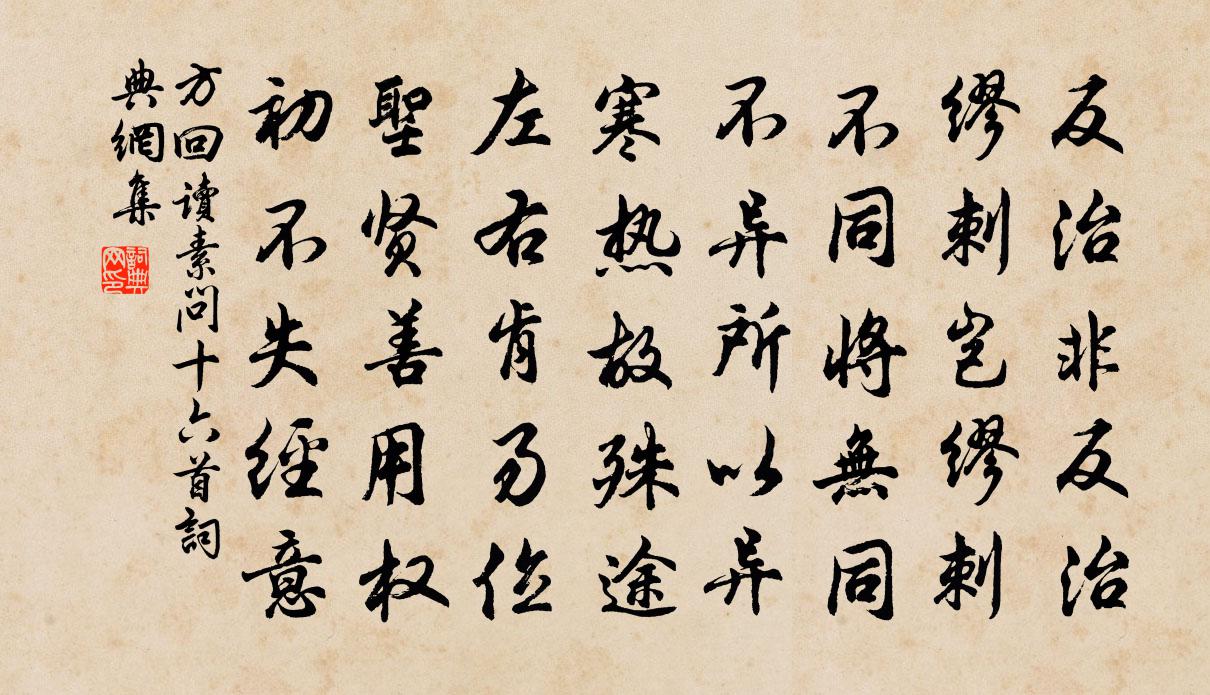 反治非反治
繆刺岂繆刺
不同将無同
不异所以异
寒热故殊途
左右肯易位
聖贤善用权
初不失經意
方回讀素問十六首詞
典網集
詞典
网印